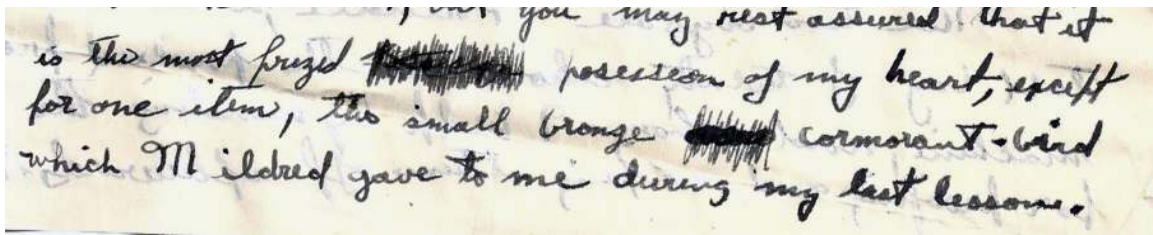 you may rest assured that it
is the most prized posession of my heart, except
for one item, the small bronze cormorant-bird
which Mildred gave to me during my last lesson.